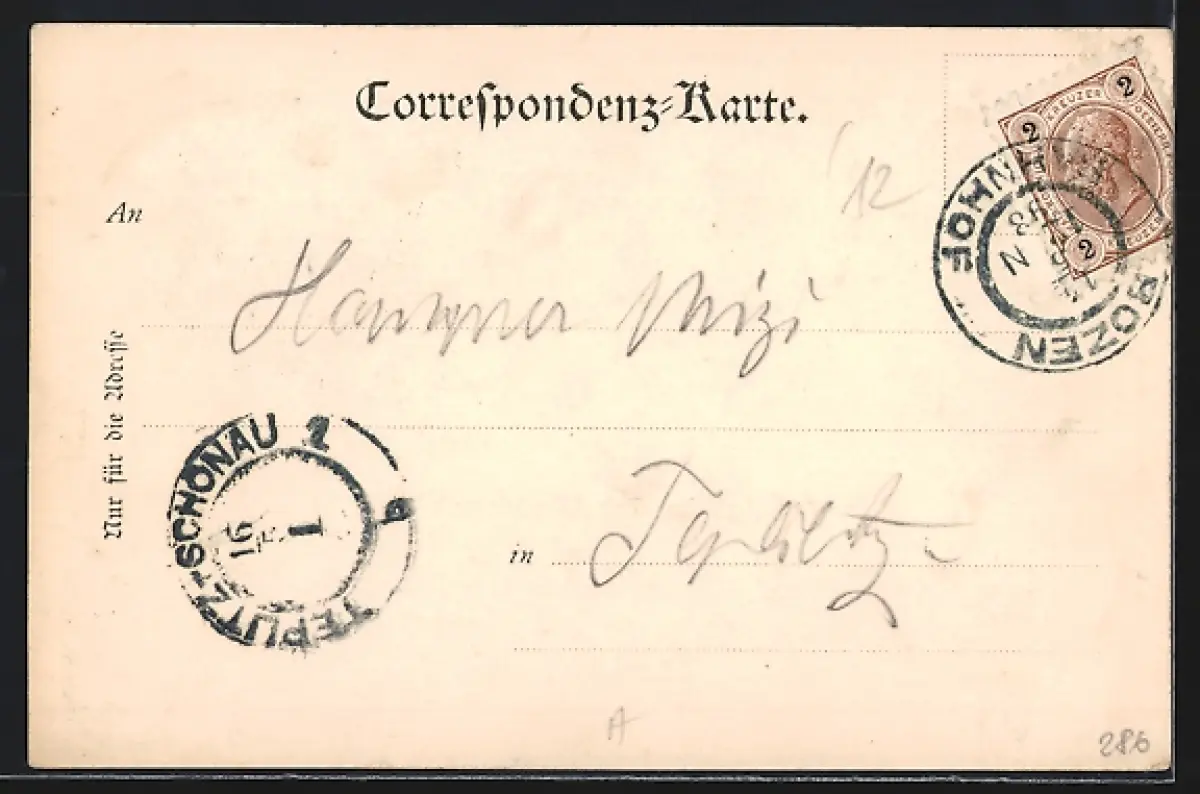 Correspondenz-Karte.
2 KREUZER 2
2 KREUZER
12
An
BOZEN
JOHN HOF
N
Mizi
Nur für die Adresse
TEPLITZ-SCHÖNAU 1
16
1
b
in Teplitz
A
286